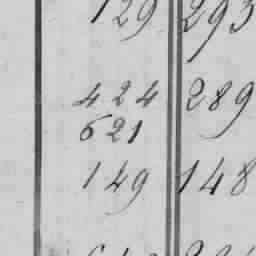 129 293
424 289
621
149 148